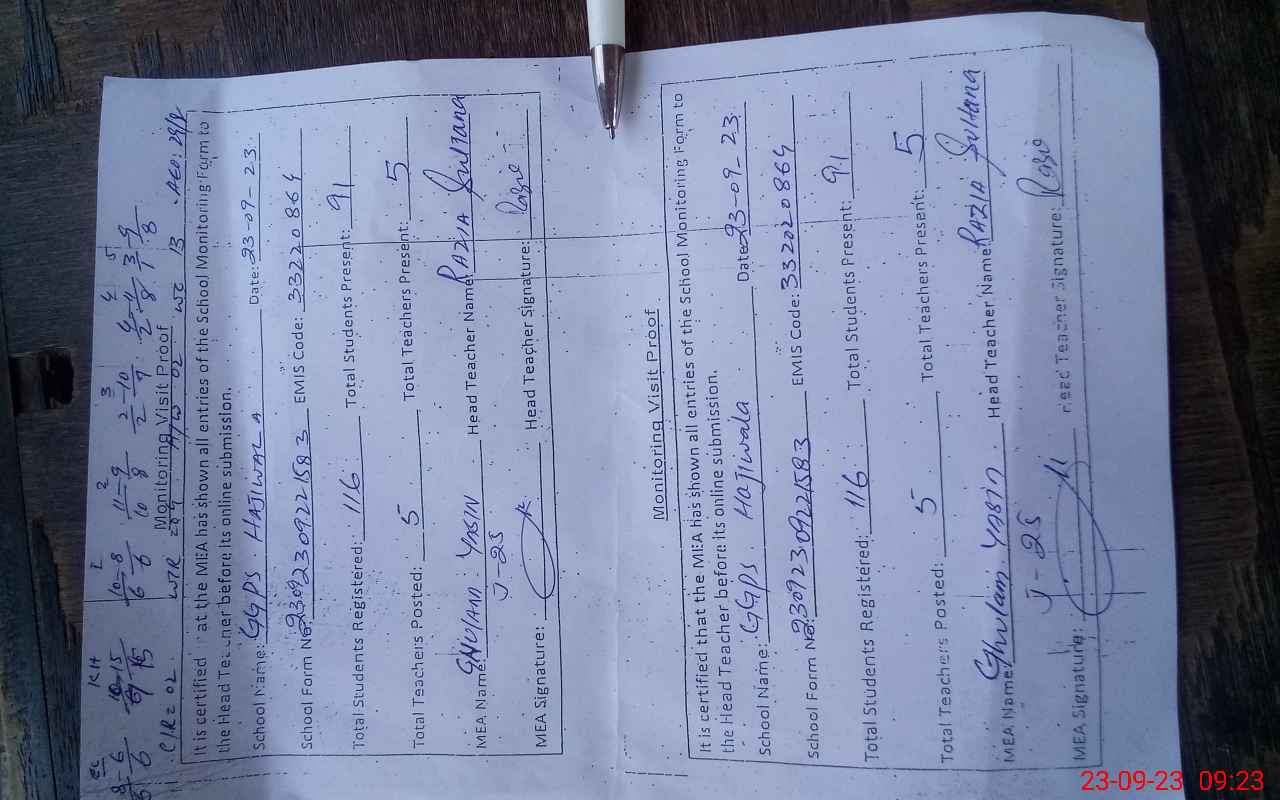 Monitoring Visit Proof
It is certified at the MEA has shown all entries of the School Monitoring Form to
the Head Teacher before its online submission.
School Name: GGPS. HAJIWALA Date: 23-09-23.
School Form No: 23092309221583 EMIS Code: 33220864
Total Students Registered: 116 Total Students Present: 91
Total Teachers Posted: 5 Total Teachers Present: 5
MEA Name: GHULAM. YASIN Head Teacher Name: RAZIA Sultana
J-25
MEA Signature: Head Teacher Signature: Razia
Monitoring Visit Proof
It is certified that the MEA has shown all entries of the School Monitoring Form to
the Head Teacher before its online submission.
School Name: GGPS. Hajiwala Date: 23-09-23.
School Form No: 23092309221583 EMIS Code: 33220864
Total Students Registered: 116 Total Students Present: 91
Total Teachers Posted: 5 Total Teachers Present: 5
MEA Name: Ghulam. Yasin Head Teacher Name: RAZIA Sultana
J-25
MEA Signature: Head Teacher Signature: Razia
23-09-23 09:23